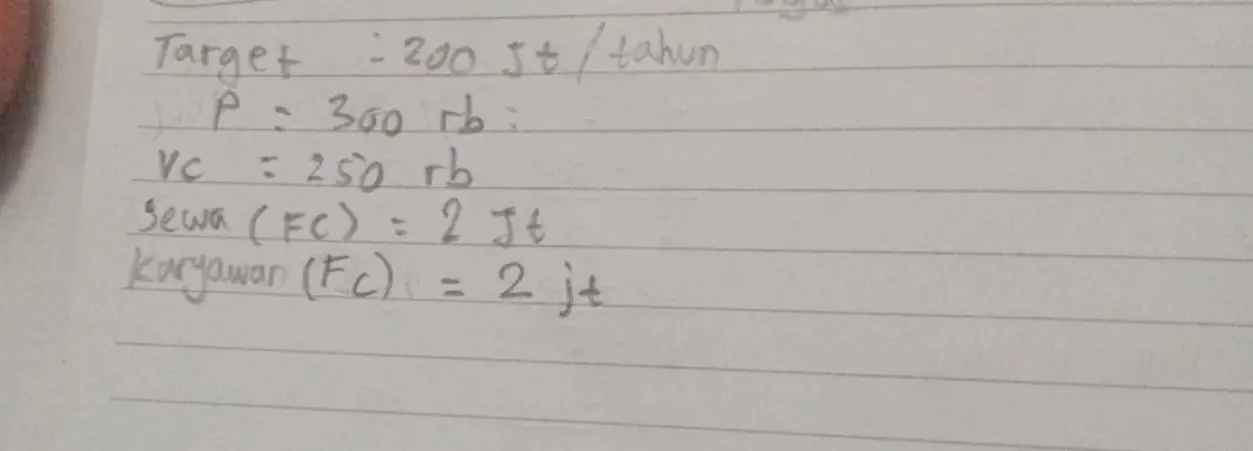 Target = 200 Jt/tahun
P = 300 rb:
VC = 250 rb
Sewa (FC) = 2 Jt
Karyawan (FC) = 2 jt